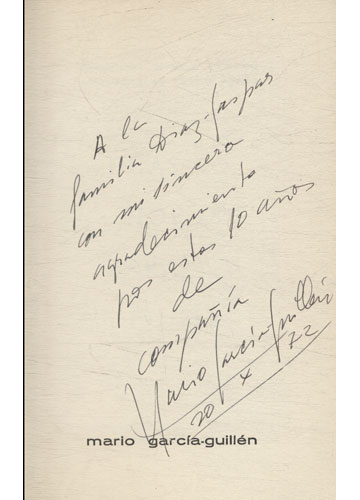 A la
familia Diaz-Gaspar
con mi sincero
agradecimiento
por estos 10 años
de
compañía
Mario García-Guillén
20 X 72
mario garcía-guillén